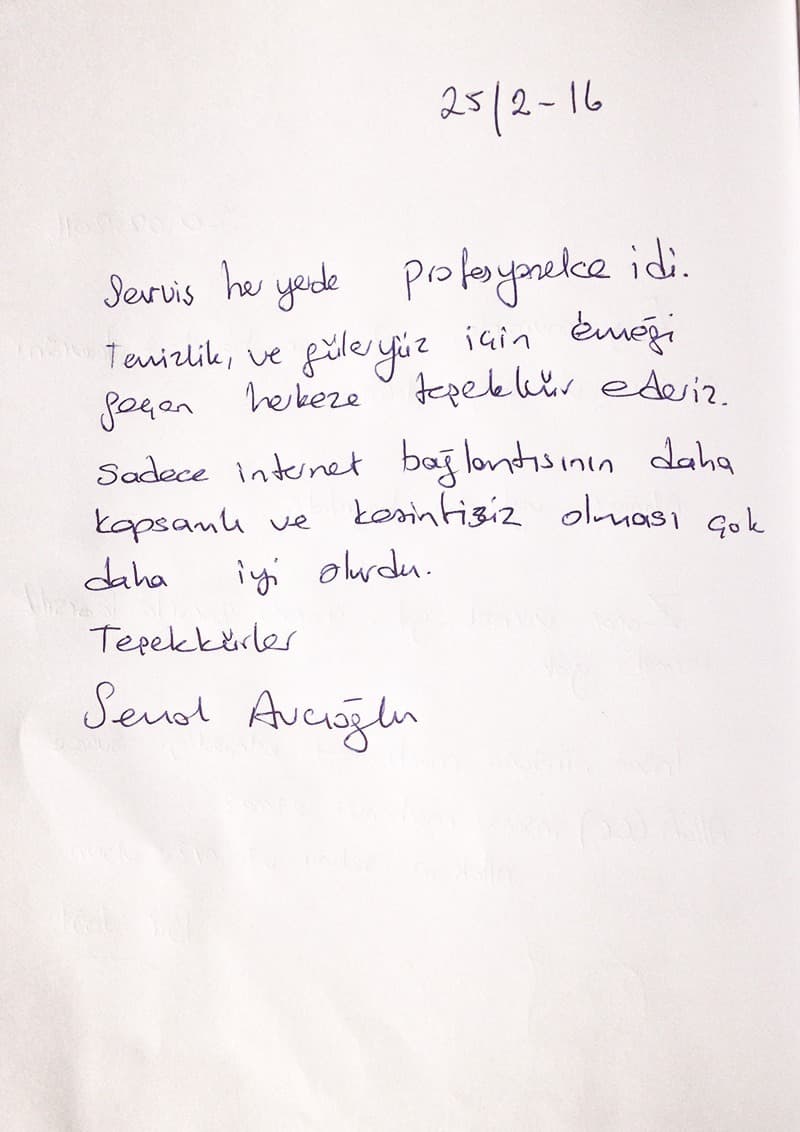 25/2-16
Servis her yerde profesyonelce idi.
Temizlik, ve güleryüz için emeği
geçen herkeze teşekkür ederiz.
Sadece internet bağlantısının daha
kapsamlı ve kesintisiz olması çok
daha iyi olurdu.
Teşekkürler
Senol Avcıoğlu